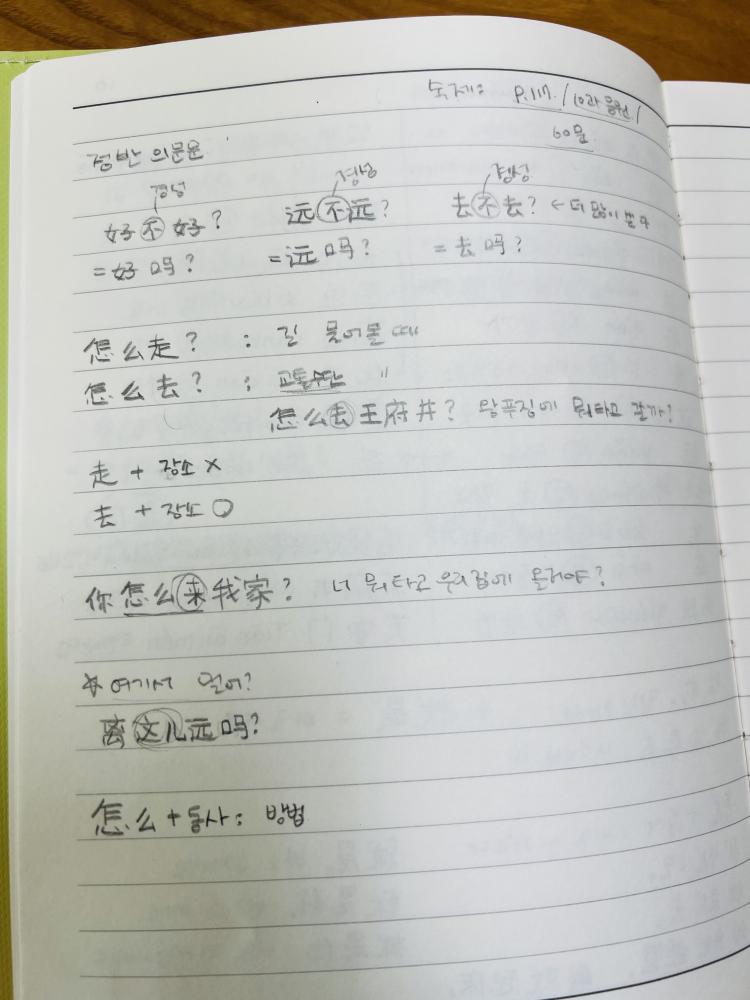 숙제: P.117. / 10과 응원 /
60문
정반 의문문
경성 경성 경성
好不好? 远不远? 去不去? ← 더 많이 쓴다
=好吗? =远吗? =去吗?
怎么走? : 길 물어볼 때
怎么去? : 교통수단 〃
怎么去王府井? 왕푸징에 뭐타고 갈까?
走 + 장소 ×
去 + 장소 ○
你怎么来我家? 너 뭐타고 우리집에 올거야?
☆ 여기서 멀어?
离这儿远吗?
怎么 + 동사: 방법